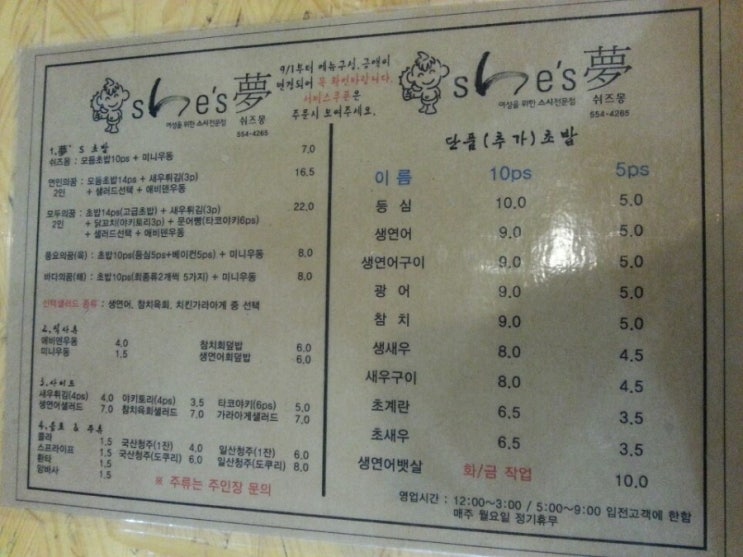 she's夢
여성을 위한 스시전문점
쉬즈몽
554-4265
9/1부터 메뉴구성, 금액이
변경되어 꼭 확인바랍니다.
서비스쿠폰은
주문시 보여주세요.
1.夢'S 초밥
쉬즈몽 : 모듬초밥10ps + 미니우동 7.0
연인의꿈 : 모듬초밥14ps + 새우튀김(3p) 16.5
2인 + 샐러드선택 + 애비덴우동
모두의꿈 : 초밥14ps(고급초밥) + 새우튀김(3p) 22.0
2인 + 닭꼬치(야키토리3p) + 문어빵(타코야키6ps)
+ 샐러드선택 + 애비덴우동
풍요의꿈(육) : 초밥10ps(등심5ps+베이컨5ps) + 미니우동 8.0
바다의꿈(해) : 초밥10ps(회종류2개씩 5가지) + 미니우동 8.0
선택샐러드 종류 : 생연어, 참치육회, 치킨가라아게 중 선택
2.식사류
애비덴우동 4.0 참치회덮밥 6.0
미니우동 1.5 생연어회덮밥 6.0
3.사이드
새우튀김(4ps) 4.0 야키토리(4ps) 3.5 타코야키(6ps) 5.0
생연어샐러드 7.0 참치육회샐러드 7.0 가라아게샐러드 7.0
4.음료 & 주류
콜라 1.5 국산청주(1잔) 4.0 일산청주(1잔) 6.0
스프라이프 1.5 국산청주(도쿠리) 6.0 일산청주(도쿠리) 8.0
환타 1.5
암바사 1.5
※ 주류는 주인장 문의
she's夢
여성을 위한 스시전문점
쉬즈몽
554-4265
단품(추가)초밥
이름 10ps 5ps
등심 10.0 5.0
생연어 9.0 5.0
생연어구이 9.0 5.0
광어 9.0 5.0
참치 9.0 5.0
생새우 8.0 4.5
새우구이 8.0 4.5
초계란 6.5 3.5
초새우 6.5 3.5
생연어뱃살 화/금 작업 10.0
영업시간 : 12:00~3:00 / 5:00~9:00 입전고객에 한함
매주 월요일 정기휴무